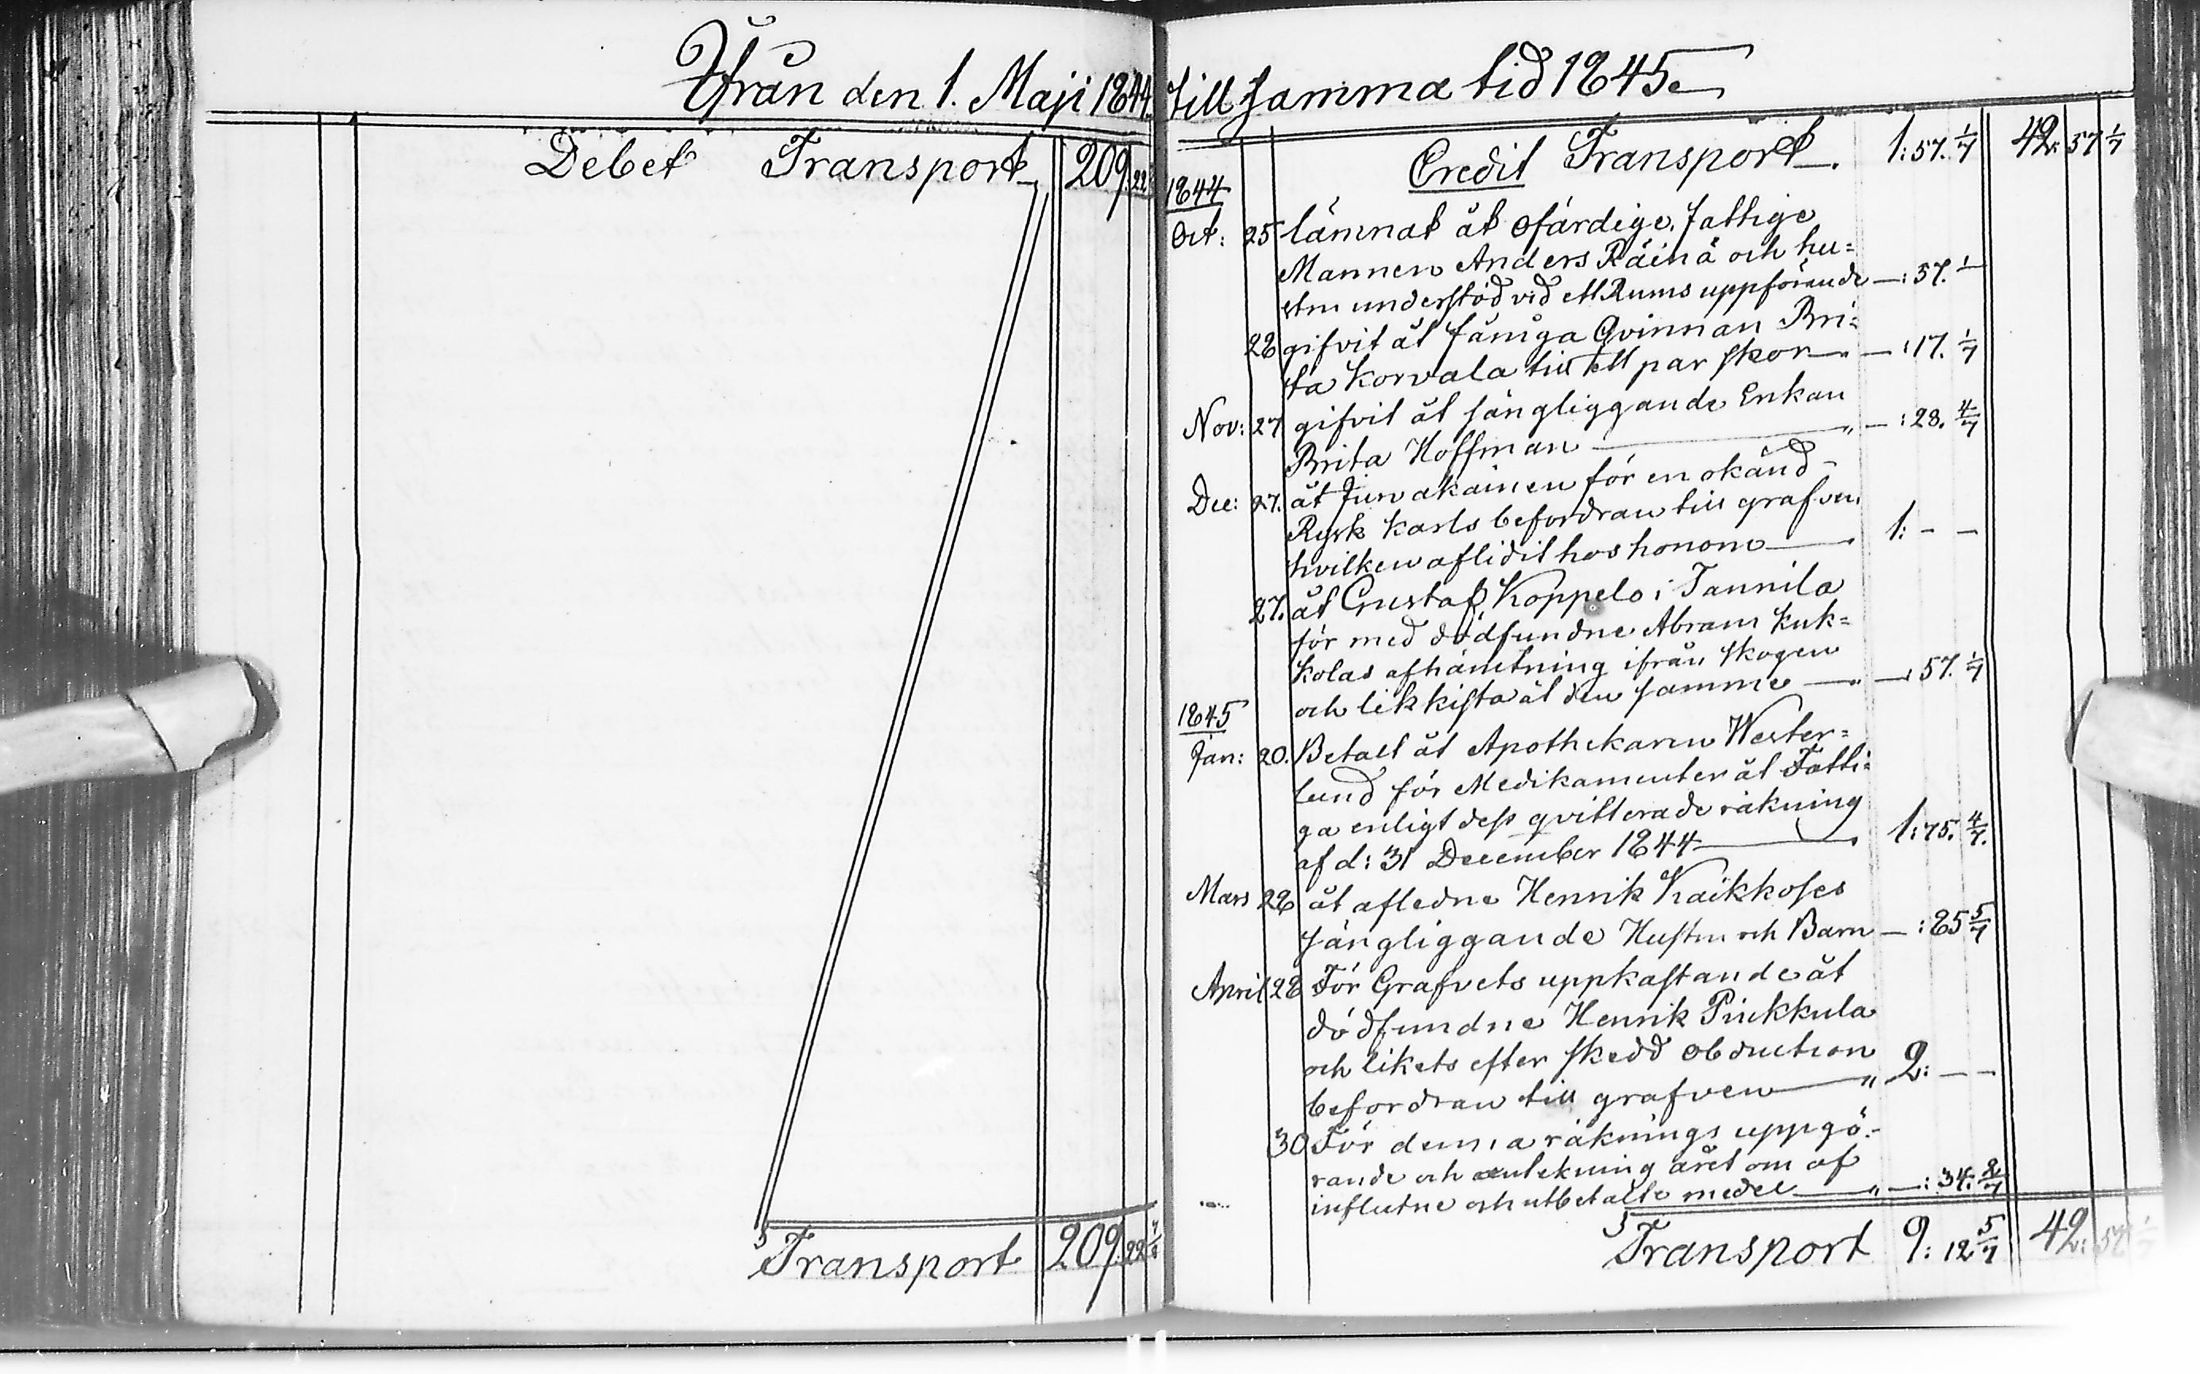 Ifrån den 1. Maji 1844. till samma tid 1845.
Debet Transport 209. 22
Transport 209. 22
Credit Transport. 1:57. 1/7 42: 57 1/7
1844
Oct: 25 lämnat åt ofärdige, fattige
Mannen Anders Räinä och hu=
strn understöd vid ett Rums uppförande —:57. 1
28 gifvit åt sånga Qvinnan Bri=
ta Korvala till ett par skor — —:17. 1/7
Nov: 27 gifvit åt sängliggande Enkan
Brita Hoffman — " —:28. 4/7
Dec: 27. åt Junakainen för en okänd
Rysk Karls befordran till grafven,
hvilken aflidit hos honom — 1: — —
27. åt Gustaf Koppelo i Tannila
för med dödfundne Abram Kuk=
kolas afhämtning ifrån skogen
och likkista åt den samme — —:57. 1/7
1845
Jan: 20. Betalt åt Apothekaren Wester=
lund för Medikamenter åt Fatti=
ga enligt dess qvitterade räkning
af d: 31 December 1844 — 1:75. 4/7.
Mars 28 åt afledne Henrik Kaikkoses
sängliggande Hustru och Barn —:85 5/7
April 28 För Grafvets uppkastande åt
dödfundne Henrik Pinkkula
och likets efter skedd obduction
befordran till grafven — " 2: — —
30 För denna räknings uppgö=
rande och anteckning året om af
influtne och utbetalte medel — " —:34. 2/7
Transport 9: 12 5/7 42: 57 1/7